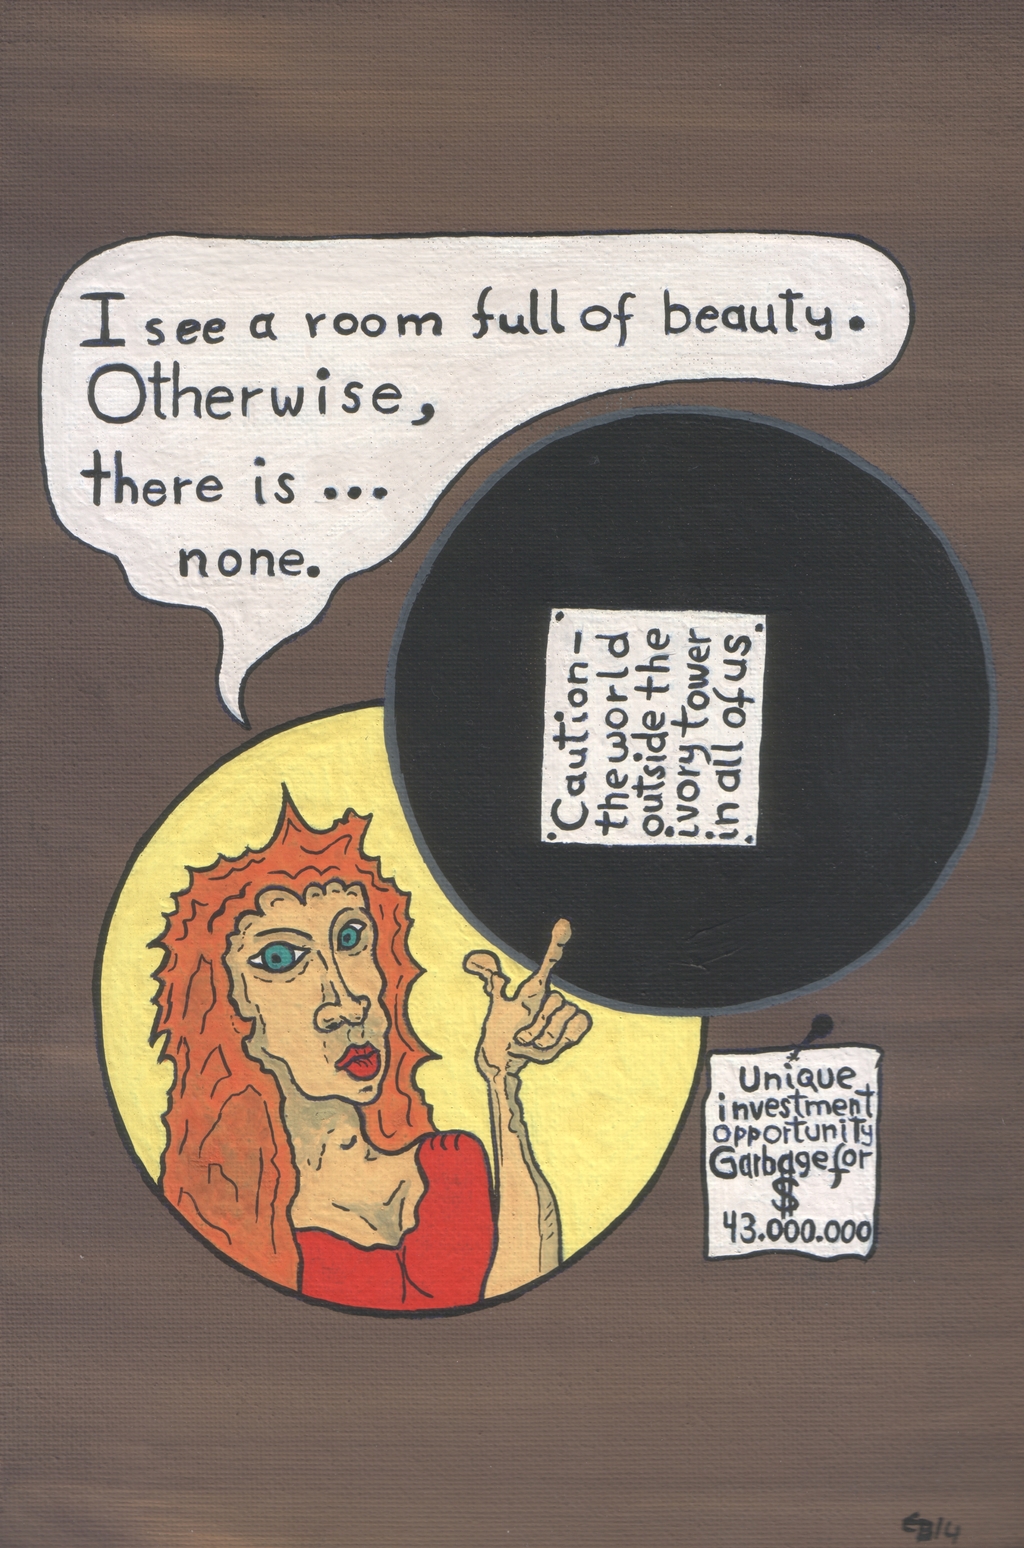 I see a room full of beauty.
Otherwise,
there is ...
none.
Caution-
the world
outside the
ivory tower
in all of us
Unique
investment
opportunity
Garbage for
$
43.000.000